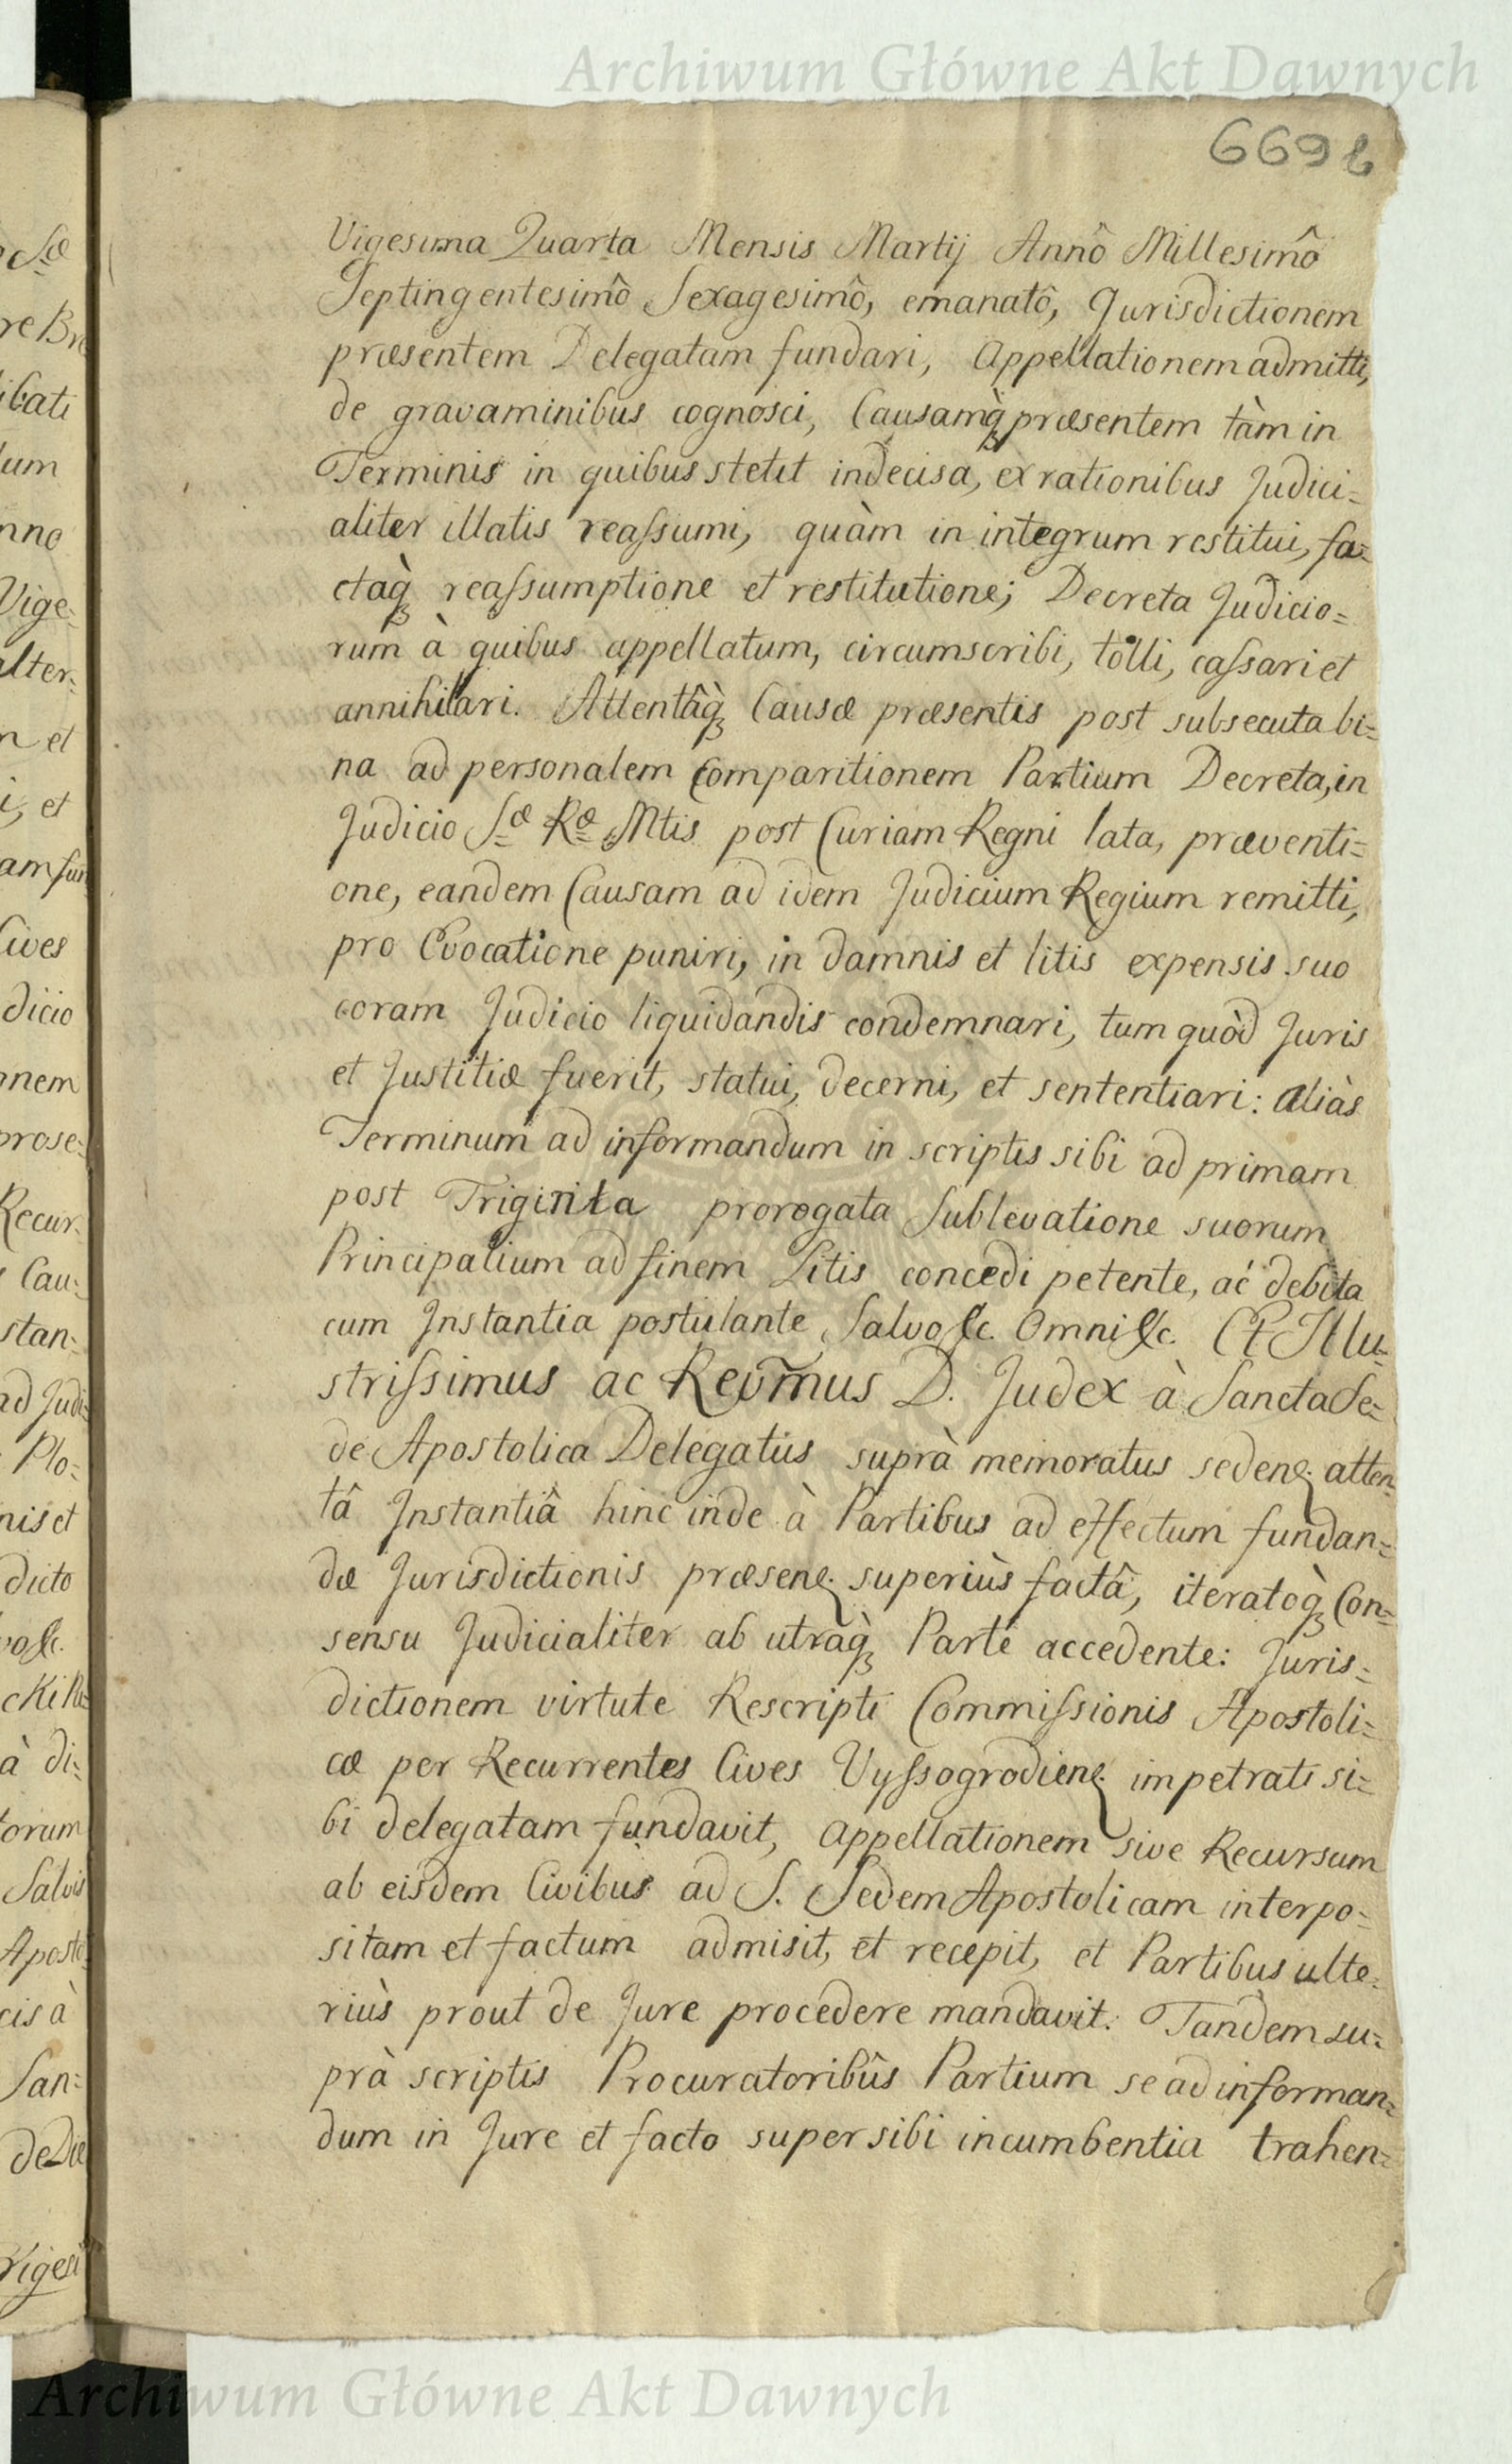 Archiwum Główne Akt Dawnych
669 b
Vigesima Quarta Mensis Martij Annô Millesimô
Septingentesimô Sexagesimô, emanatô, Jurisdictionem
præsentem Delegatam fundari, Appellationem admitti,
de gravaminibus cognosci, Causamq̀ præsentem tàm in
Terminis in quibus stetit indecisa, ex rationibus Judici=
aliter illatis reaſsumi, quàm in integrum restitui, fa=
ctaq̀ reaſsumptione et restitutione; Decreta Judicio=
rum à quibus appellatum, circumscribi, tolli, caſsari et
annihilari. Attentâq̀ Causæ præsentis post subsecuta bi=
na ad personalem Comparitionem Partium Decreta, in
Judicio Sæ Ræ Mtis post Curiam Regni lata, præventi=
one, eandem Causam ad idem Judicium Regium remitti,
pro Evocatione puniri, in damnis et litis expensis suo
coram Judicio liquidandis condemnari, tum quòd Juris
et Justitiæ fuerit, statui, decerni, et sententiari: aliàs
Terminum ad informandum in scriptis sibi ad primam
post Triginta prorogata Sublevatione suorum
Principalium ad finem Litis concedi petente, ac debita
cum Instantia postulante, Salvo &c. Omni &c. Et Illu=
striſsimus ac Rev̄mus D. Judex à Sancta Se=
de Apostolica Delegatus suprà memoratus seden. atten
tâ Instantiâ hinc inde à Partibus ad effectum fundan=
dæ Jurisdictionis præsen. superiùs factâ, iteratoq̀ Con=
sensu Judicialiter ab utraq̀ Parte accedente: Juris=
dictionem virtute Rescripti Commiſsionis Apostoli=
cæ per Recurrentes Cives Vyſsogrodien. impetrati si=
bi delegatam fundavit, Appellationem sive Recursum
ab eisdem Civibus ad S. Sedem Apostolicam interpo=
sitam et factum admisit, et recepit, et Partibus ulte=
riùs prout de Jure procedere mandavit. Tandem su=
prà scriptis Procuratoribûs Partium se ad informan=
dum in Jure et facto super sibi incumbentia trahen=
Archiwum Główne Akt Dawnych